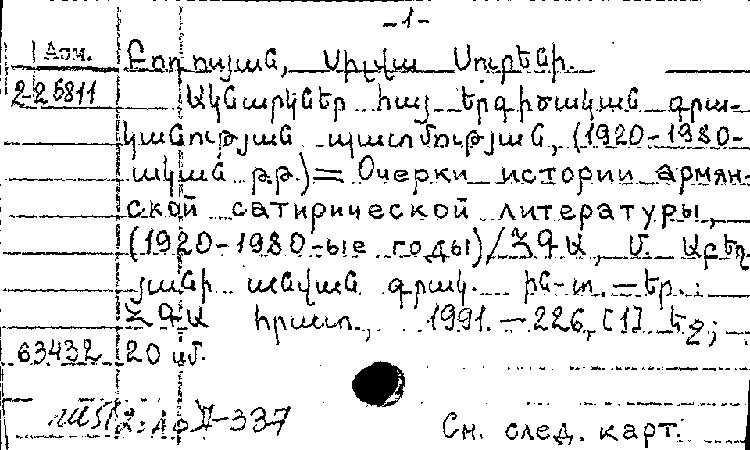 -1-
Арм. Բողոսյան, Սիլվա Սուրենի.
2-25811 Ակնարկներ հայ երգիծական գրա-
կանության պատմության, (1920-1980-
ական թթ.) = Очерки истории армян-
ской сатирической литературы,
(1920-1980-ые годы)/ՀԳԱ, Մ. Աբեղ
յանի անվան գրակ. ին-տ. — Եր.:
ՀԳԱ հրատ., 1991. — 226, [1] էջ;
63432 20 սմ.
-337
См. след. карт.